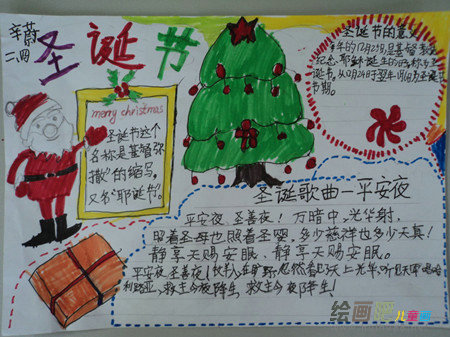 辛蔚
二、四
圣诞节
merry christmas
圣诞节这个
名称是基督弥
撒"的缩写,
又名"耶诞节"。
圣诞节的意义
年的12月25日,是基督教
纪念耶稣诞生的
诞节,从12月24日于翌年1月6日为圣诞节
节期。
圣诞歌曲一平安夜
平安夜,圣善夜!万暗中,光华射,
照着圣母也照着圣婴,多少慈祥也多少天真!
静享天赐安眠、静享天赐安眠。
平安夜圣善夜!牧羊人,在旷野,忽然看见了天上光华,听见天军唱哈
利路亚,救主今夜降生,救主今夜降生!
绘画吧儿童